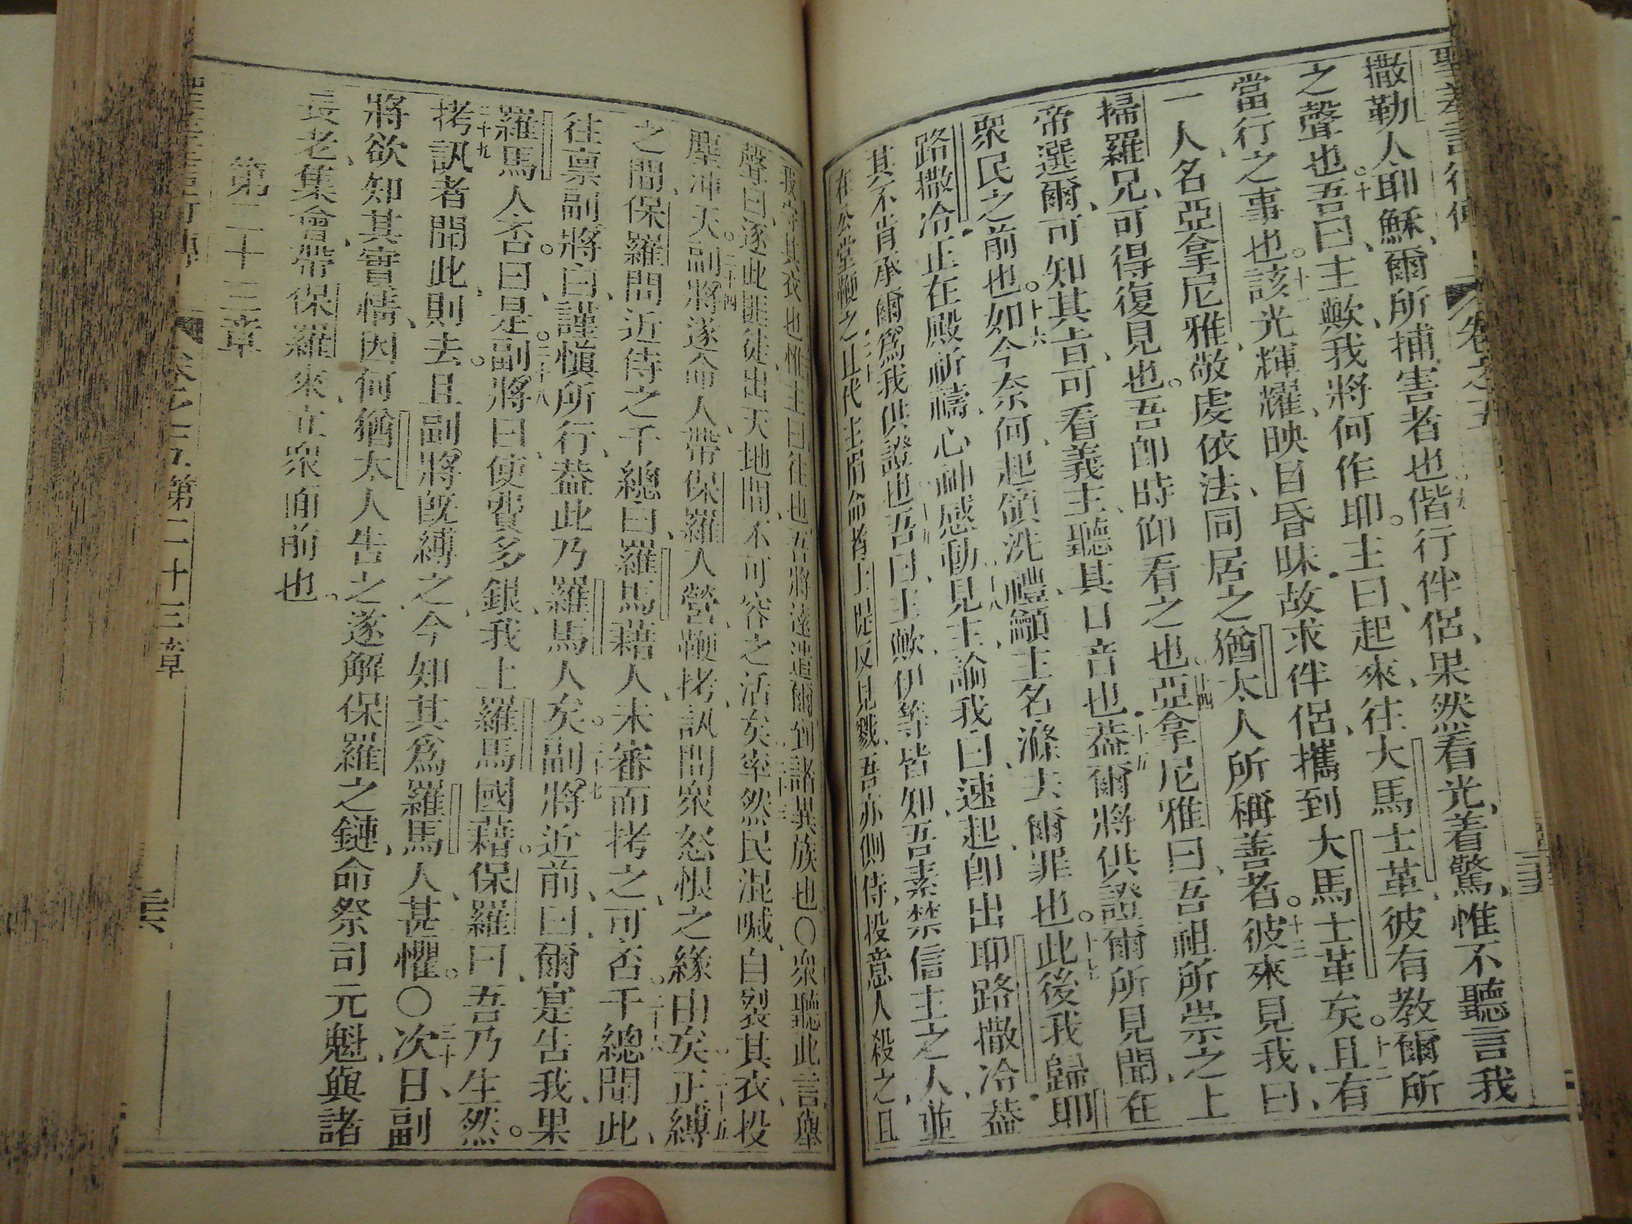 撒勒人耶穌、爾所捕害者也偕行伴侶、果然看光、着驚、惟不聽言我
之聲也。十吾曰、主歟、我將何作耶。主曰、起來、往大馬士革、彼有教爾所
當行之事也。十一該光輝耀、映目昏昧、故求伴侶、攜到大馬士革矣。十二且有
一人名亞拿尼雅、敬虔依法、同居之猶太人所稱善者。十三彼來見我、曰、
掃羅兄、可得復見也。吾卽時仰看之也。十四亞拿尼雅曰、吾祖所崇之上
帝選爾、可知其旨、可看義主、聽其口音也。十五葢爾將供證爾所見聞、在
衆民之前也。十六如今奈何、起領洗禮、籲主名、滌去爾罪也。十七此後我歸耶
路撒冷、正在殿祈禱、心神感動、十八見主、諭我曰、速起卽出耶路撒冷、葢
其不肯承爾爲我供證也。十九吾曰、主歟、伊等皆知吾素禁信主之人、並
在公堂鞭之、二十且代主捐命者士提反見戮、吾亦側侍、投意人殺之、且
我守其衣也。惟主曰、往也、吾將遠遣爾到諸異族也。〇衆聽此言、擧
聲曰、逐此匪徒、出天地間、不可容之活矣。二十三率然民混喊、自裂其衣、投
塵沖天。二十四副將遂命人帶保羅入營、鞭拷訊問衆怒恨之緣由矣。二十五正縛
之間、保羅問近侍之千總曰、羅馬藉人、未審而拷之、可否。二十六千總聞此、
往禀副將、曰、謹愼所行、葢此乃羅馬人矣。二十七副將近前、曰、爾寔告我、果
羅馬人否。曰、是。二十八副將曰、使費多銀、我上羅馬國藉。保羅曰、吾乃生然。
二十九拷訊者聞此、則去。且副將旣縛之、今知其爲羅馬人、甚懼。〇三十次日、副
將欲知其實情、因何猶太人告之、遂解保羅之鏈、命祭司元魁、與諸
長老集論、帶保羅來、立衆面前也。
第二十三章
卷之五第二十三章